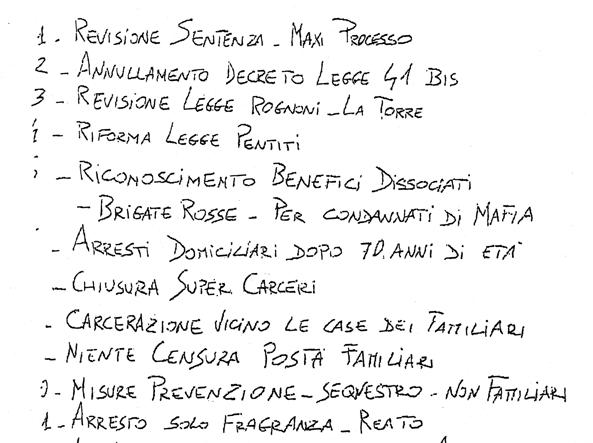 1 - REVISIONE SENTENZA - MAXI PROCESSO
2 - ANNULLAMENTO DECRETO LEGGE 41 BIS
3 - REVISIONE LEGGE ROGNONI - LA TORRE
- RIFORMA LEGGE PENTITI
- RICONOSCIMENTO BENEFICI DISSOCIATI
- BRIGATE ROSSE - PER CONDANNATI DI MAFIA
- ARRESTI DOMICILIARI DOPO 70 ANNI DI ETA'
- CHIUSURA SUPER CARCERI
- CARCERAZIONE VICINO LE CASE DEI FAMILIARI
- NIENTE CENSURA POSTA FAMILIARI
- MISURE PREVENZIONE - SEQUESTRO - NON FAMILIARI
1 - ARRESTO SOLO FRAGRANZA - REATO